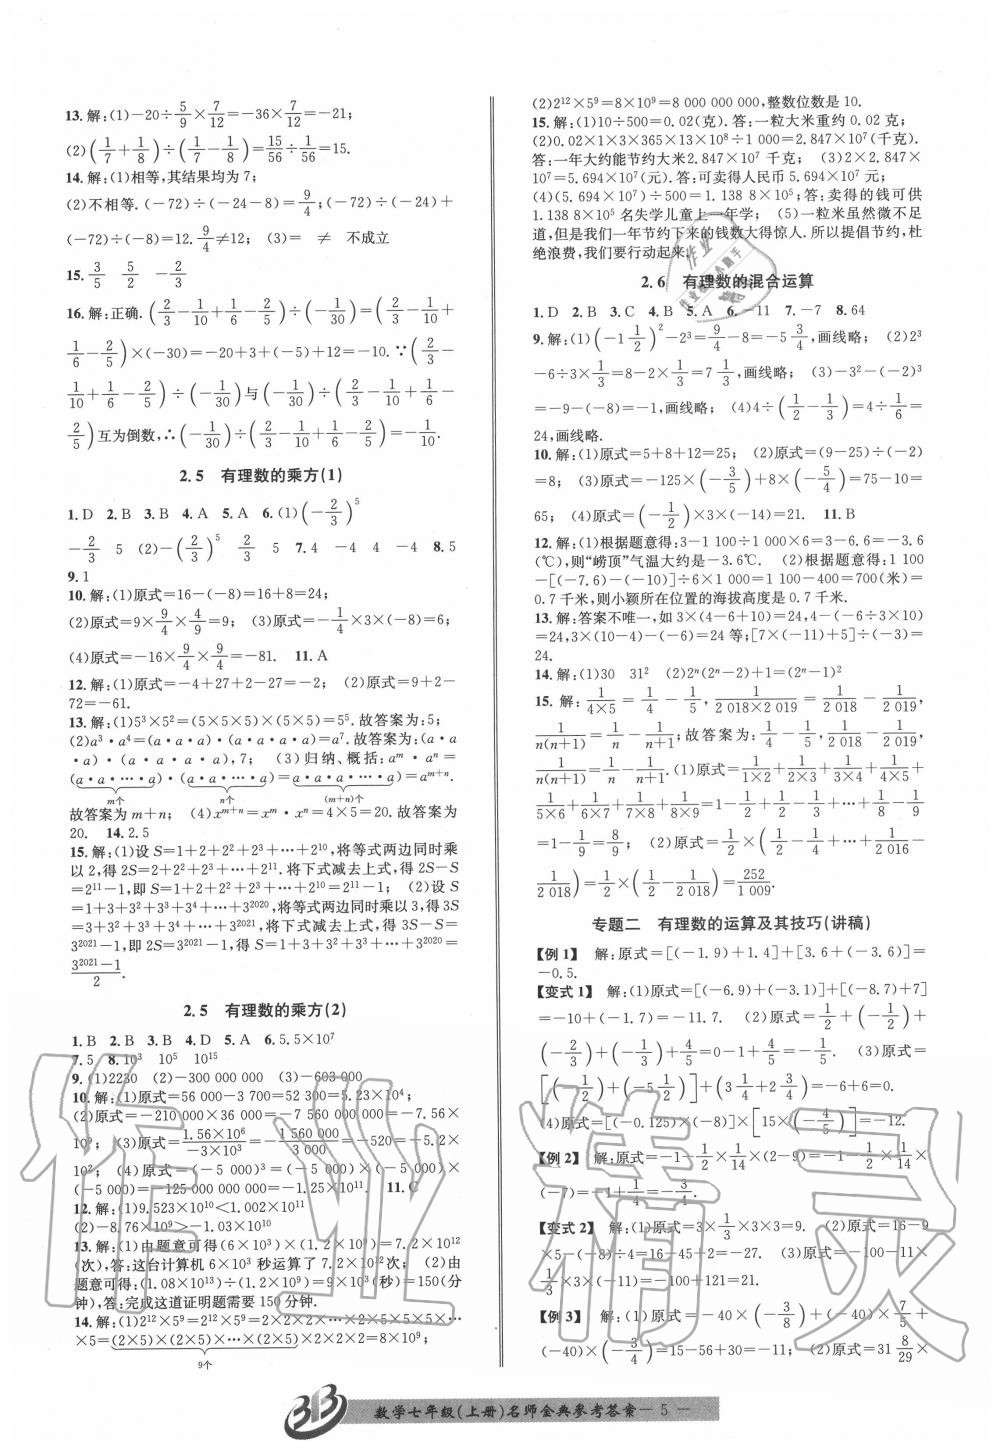 13.解:(1)-20÷5/9×7/12=-36×7/12=-21;
(2)(1/7+1/8)÷(1/7-1/8)=15/56÷1/56=15.
14.解:(1)相等,其结果均为7;
(2)不相等.(-72)÷(-24-8)=9/4;(-72)÷(-24)+
(-72)÷(-8)=12.9/4≠12; (3)= ≠ 不成立
15.3/5 5/2 -2/3
16.解:正确.(2/3-1/10+1/6-2/5)÷(-1/30)=(2/3-1/10+
1/6-2/5)×(-30)=-20+3+(-5)+12=-10.∵(2/3-
1/10+1/6-2/5)÷(-1/30)与(-1/30)÷(2/3-1/10+1/6-
2/5)互为倒数,∴(-1/30)÷(2/3-1/10+1/6-2/5)=-1/10.
2.5 有理数的乘方(1)
1.D 2.B 3.B 4.A 5.A 6.(1)(-2/3)⁵
-2/3 5 (2)-(2/3)⁵ 2/3 5 7.4 -4 4 -4 8.5
9.1
10.解:(1)原式=16-(-8)=16+8=24;
(2)原式=9×9/4×4/9=9; (3)原式=-1/4×3×(-8)=6;
(4)原式=-16×9/4×9/4=-81. 11.A
12.解:(1)原式=-4+27+2-27=-2; (2)原式=9+2-
72=-61.
13.解:(1)5³×5²=(5×5×5)×(5×5)=5⁵.故答案为:5;
(2)a³·a⁴=(a·a·a)·(a·a·a·a)=a⁷.故答案为:(a·
a·a)·(a·a·a·a),7; (3)归纳、概括:aᵐ·aⁿ=
(a·a·…·a)·(a·a·…·a)=a·a·a·…·a=aᵐ⁺ⁿ.
m个 n个 (m+n)个
故答案为m+n; (4)xᵐ⁺ⁿ=xᵐ·xⁿ=4×5=20.故答案为
20. 14.2.5
15.解:(1)设S=1+2+2²+2³+…+2¹⁰,将等式两边同时乘
以2,得2S=2+2²+2³+…+2¹¹.将下式减去上式,得2S-S
=2¹¹-1,即S=1+2+2²+2³+…+2¹⁰=2¹¹-1; (2)设S
=1+3+3²+3³+3⁴+…+3²⁰²⁰,将等式两边同时乘以3,得3S
=3+3²+3³+3⁴+…+3²⁰²¹,将下式减去上式,得3S-S=
3²⁰²¹-1,即2S=3²⁰²¹-1,得S=1+3+3²+3³+…+3²⁰²⁰=
(3²⁰²¹-1)/2.
2.5 有理数的乘方(2)
1.B 2.B 3.B 4.D 5.A 6.5.5×10⁷
7.5 8.10³ 10⁵ 10¹⁵
9.(1)2230 (2)-300 000 000 (3)-603 000
10.解:(1)原式=56 000-3 700=52 300=5.23×10⁴;
(2)原式=-210 000×36 000=-7 560 000 000=-7.56×
10⁹; (3)原式=1.56×10⁶/-3×10³=-1 560 000/3 000=-520=-5.2×
10²; (4)原式=(-5 000)³=(-5 000)×(-5 000)×
(-5 000)=-125 000 000 000=-1.25×10¹¹. 11.C
12.解:(1)9.523×10¹⁰<1.002×10¹¹
(2)-8.76×10⁹>-1.03×10¹⁰
13.解:(1)由题意可得(6×10³)×(1.2×10⁹)=7.2×10¹²
(次),答:这台计算机6×10³秒运算了7.2×10¹²次; (2)由
题意可得:(1.08×10¹³)÷(1.2×10⁹)=9×10³(秒)=150(分
钟),答:完成这道证明题需要150分钟.
14.解:(1)2¹²×5⁹=2¹²×5⁹=2×2×2×…×2×5×5×5×…
×5=(2×5)×(2×5)×…×(2×5)×2×2×2=8×10⁹;
9个
(2)2¹²×5⁹=8×10⁹=8 000 000 000,整数位数是10.
15.解:(1)10÷500=0.02(克).答:一粒大米重约0.02克;
(2)0.02×1×3×365×13×10⁸÷1 000=2.847×10⁷(千克).
答:一年大约能节约大米2.847×10⁷千克; (3)2×2.847×
10⁷=5.694×10⁷(元).答:可卖得人民币5.694×10⁷元;
(4)(5.694×10⁷)÷500=1.138 8×10⁵;答:卖得的钱可供
1.138 8×10⁵名失学儿童上一年学; (5)一粒米虽然微不足
道,但是我们一年节约下来的钱数大得惊人.所以提倡节约,杜
绝浪费,我们要行动起来.
2.6 有理数的混合运算
1.D 2.B 3.C 4.B 5.A 6.-11 7.-7 8.64
9.解:(1)(-1 1/2)²-2³=9/4-8=-5 3/4,画线略; (2)2³
-6÷3×1/3=8-2×1/3=7 1/3,画线略; (3)-3²-(-2)³
=-9-(-8)=-1,画线略; (4)4÷(1/2-1/3)=4÷1/6=
24,画线略.
10.解:(1)原式=5+8+12=25; (2)原式=(9-25)÷(-2)
=8; (3)原式=-125×(-3/5)+(-5/4)×8=75-10=
65; (4)原式=(-1/2)×3×(-14)=21. 11.B
12.解:(1)根据题意得:3-1 100÷1 000×6=3-6.6=-3.6
(℃),则“崂顶”气温大约是-3.6℃; (2)根据题意得:1 100
-[(-7.6)-(-10)]÷6×1 000=1 100-400=700(米)=
0.7千米,则小颖所在位置的海拔高度是0.7千米.
13.解:答案不唯一,如3×(4-6+10)=24,4-(-6÷3×10)
=24,3×(10-4)-(-6)=24等;[7×(-11)+5]÷(-3)=
24.
14.解:(1)30 31² (2)2ⁿ(2ⁿ-2)+1=(2ⁿ-1)²
15.解:1/4×5=1/4-1/5,1/2 018×2 019=1/2 018-1/2 019,
1/n(n+1)=1/n-1/n+1;故答案为:1/4-1/5,1/2 018-1/2 019,
1/n(n+1)=1/n-1/n+1.(1)原式=1/1×2+1/2×3+1/3×4+1/4×5+
1/5×6+1/6×7+1/7×8+1/8×9=1-1/2+1/2-1/3+…+1/8-1/9
=1-1/9=8/9; (2)原式=1/2×(1/2-1/4+1/4-…+1/2 016-
1/2 018)=1/2×(1/2-1/2 018)=252/1 009.
专题二 有理数的运算及其技巧(讲稿)
【例1】 解:原式=[(-1.9)+1.4]+[3.6+(-3.6)]=
-0.5.
【变式1】 解:(1)原式=[(-6.9)+(-3.1)]+[(-8.7)+7]
=-10+(-1.7)=-11.7. (2)原式=1/2+(-1/2)+
(-2/3)+(-1/3)+4/5=0-1+4/5=-1/5. (3)原式=
[(-1/2)+(-5 1/2)]+(3 1/4+2 3/4)=-6+6=0.
(4)原式=[(-0.125)×(-8)]×[15×(-4/5)]=-12.
【例2】 解:原式=-1-1/2×1/14×(2-9)=-1-1/2×1/14×
(-7)=-1+1/4=-3/4.
【变式2】 解:(1)原式=3×1/3×3×3=9. (2)原式=16-9
×5-(-8)÷4=16-45+2=-27. (3)原式=-100-
1/3×3×(-11-110)=-100+121=21.
【例3】 解:(1)原式=-40×(-3/8)+(-40)×7/5+
(-40)×(-3/4)=15-56+30=-11. (2)原式=31 8/29×
数学七年级(上册)名师金典参考答案— 5 —
作业精灵